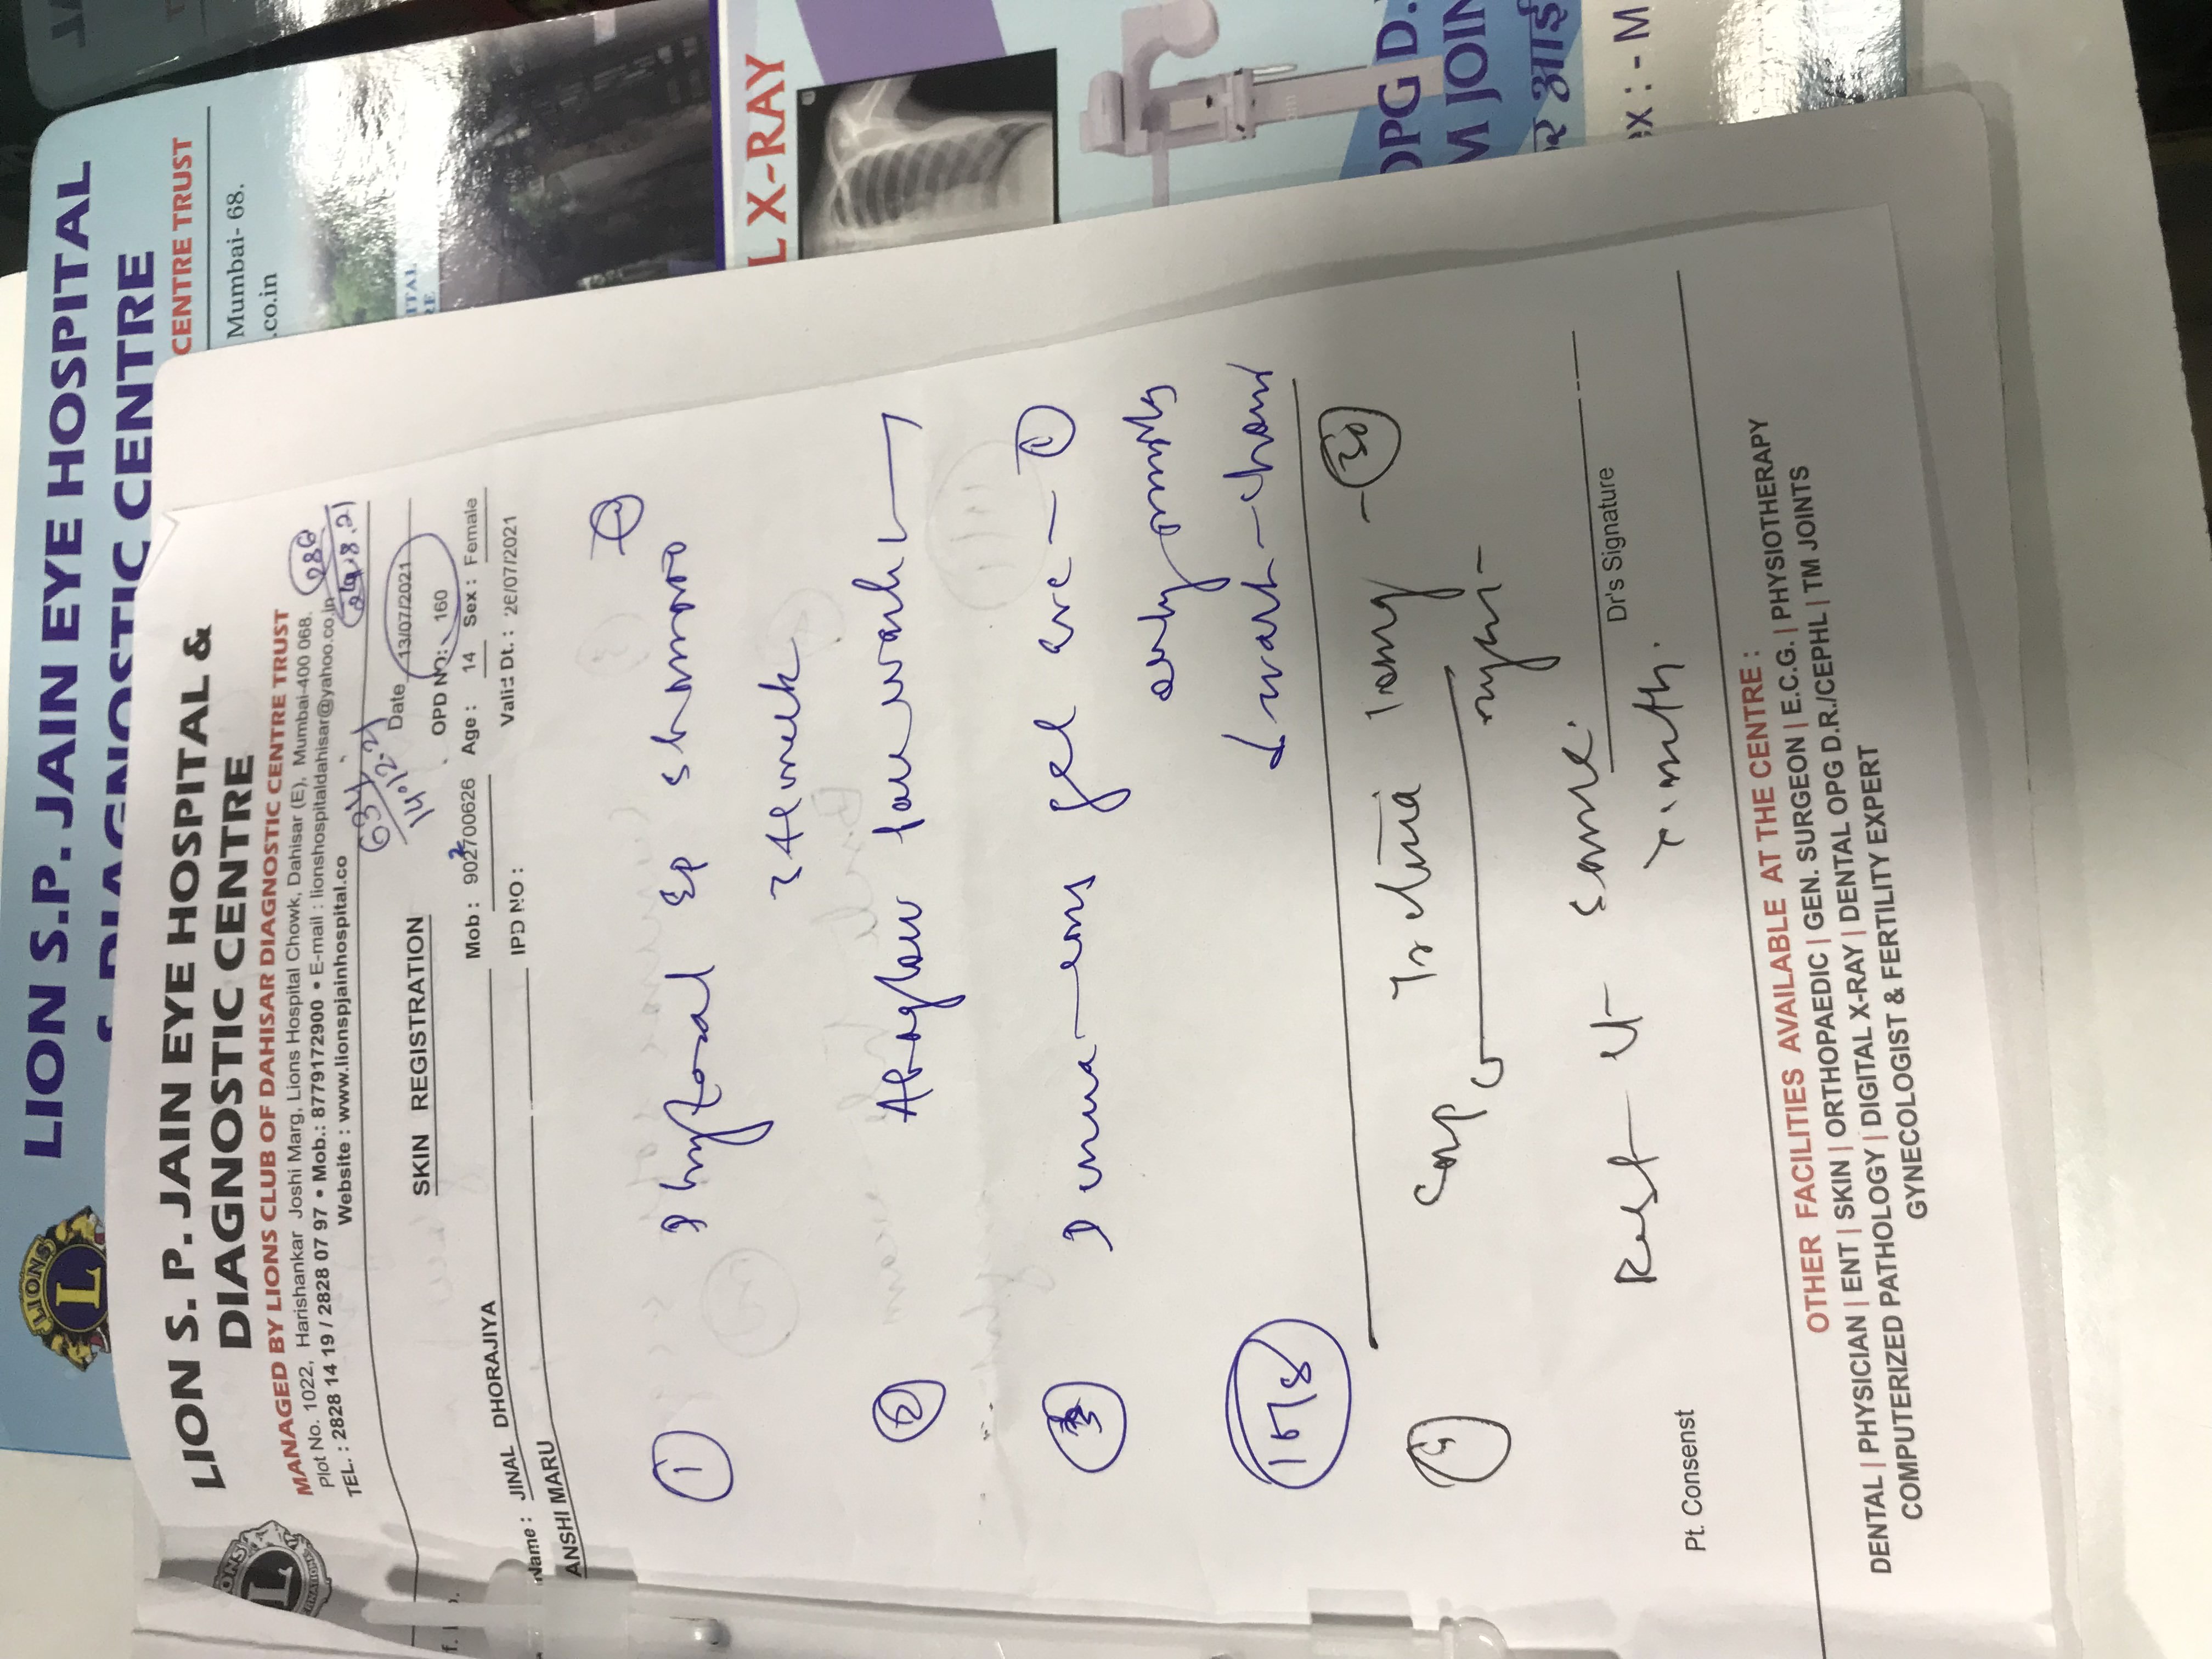 LIONS
L
LION S.P. JAIN EYE HOSPITAL
& DIAGNOSTIC CENTRE
CENTRE TRUST
Mumbai- 68.
.co.in
LION S. P. JAIN EYE HOSPITAL &
DIAGNOSTIC CENTRE
MANAGED BY LIONS CLUB OF DAHISAR DIAGNOSTIC CENTRE TRUST
Plot No. 1022, Harishankar Joshi Marg, Lions Hospital Chowk, Dahisar (E), Mumbai-400 068.
TEL. : 2828 14 19 / 2828 07 97 • Mob.: 8779172900 • E-mail : lionshospitaldahisar@yahoo.co.in
Website : www.lionspjainhospital.co
286
24.8.21
634
14.12.21
SKIN REGISTRATION
Date 13/07/2021
OPD NO: 160
Mob : 902700626 Age : 14 Sex : Female
2
Name : JINAL DHORAJIYA
IPD NO : Valid Dt. : 26/07/2021
ANSHI MARU
1 Phytoral EP shampoo
week
2 Ahaglow face wash
3 gel eve - 1
only pimples
wash
15/8
4 Cap 10mg - 30
Rest same.
Dr's Signature
Pt. Consenst
OTHER FACILITIES AVAILABLE AT THE CENTRE :
DENTAL | PHYSICIAN | ENT | SKIN | ORTHOPAEDIC | GEN. SURGEON | E.C.G. | PHYSIOTHERAPY
COMPUTERIZED PATHOLOGY | DIGITAL X-RAY | DENTAL OPG D.R./CEPHL | TM JOINTS
GYNECOLOGIST & FERTILITY EXPERT
ITAL
RE
L X-RAY
OPG D.
M JOIN
र आई
ex : - M